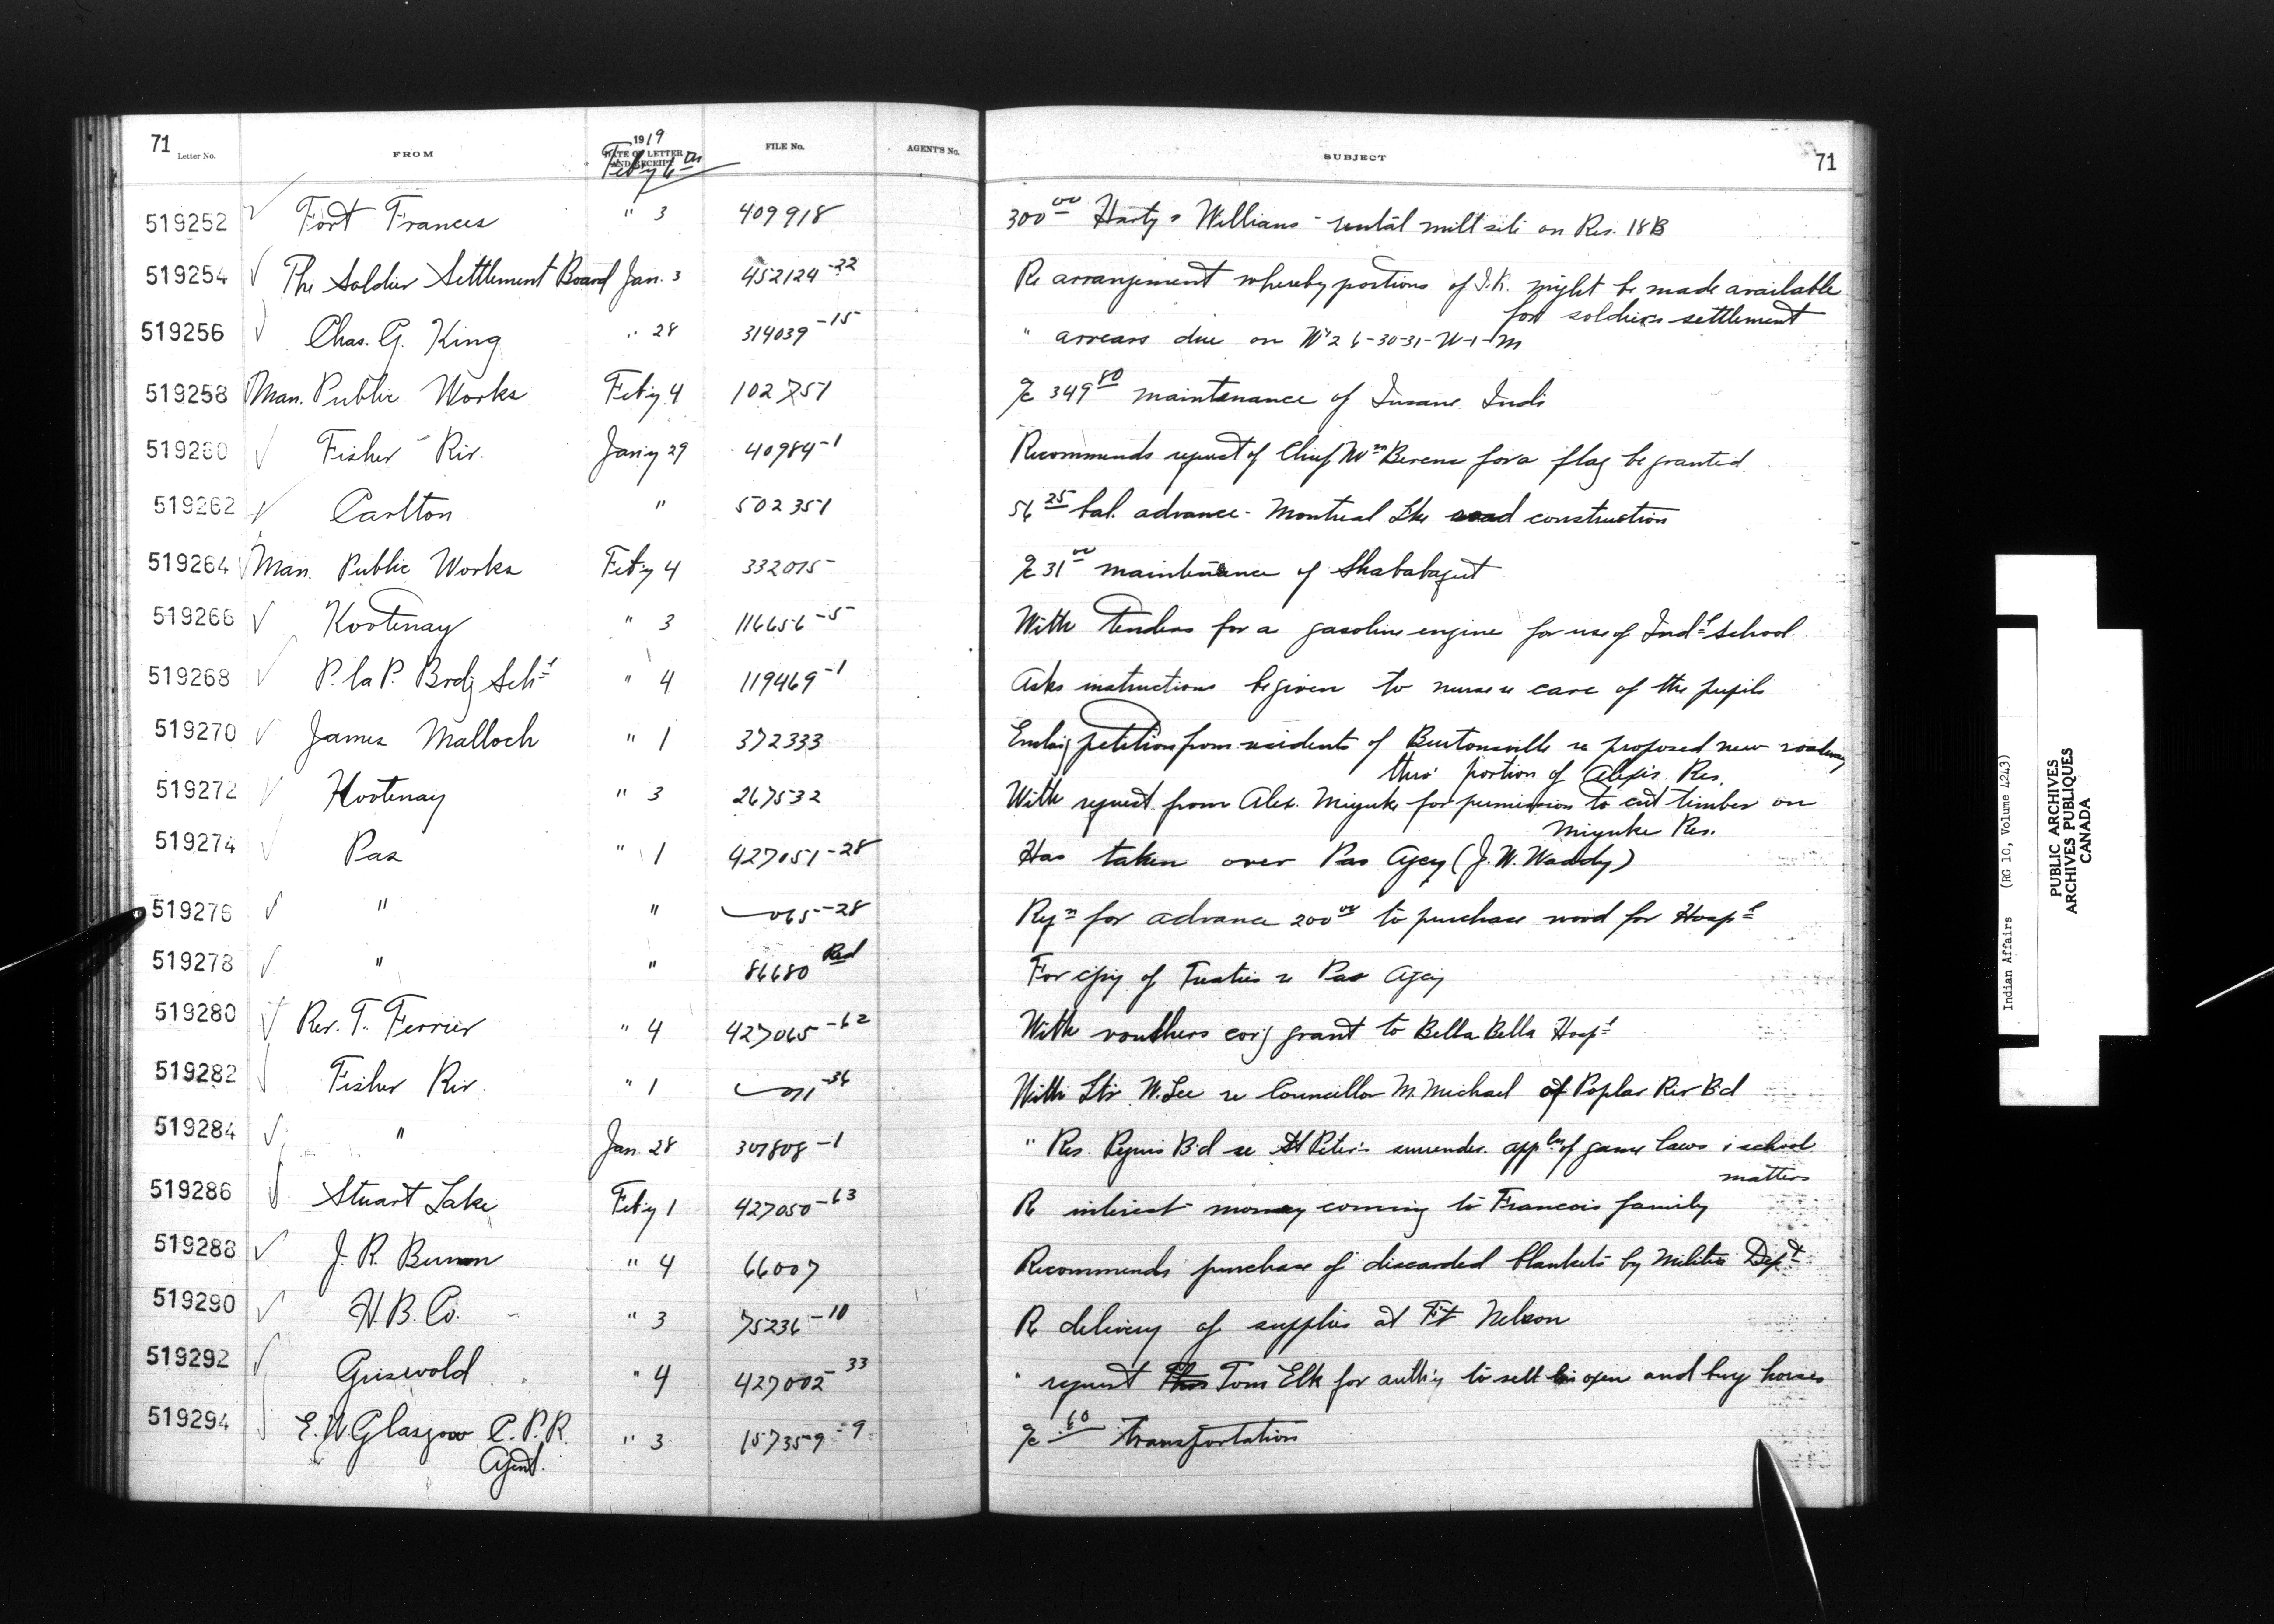 71 Letter No. FROM 1919 DATE OF LETTER AND RECEIPT FILE No. AGENT'S No. SUBJECT 71
Feb'y 6th
519252 Fort Frances " 3 409918 300 00 Harty & Williams - rental mill site on Res. 18B
519254 The Soldier Settlement Board Jan. 3 452124-22 Re arrangement whereby portions of I.R. might be made available
for soldiers settlement
519256 Chas. G. King " 28 314039-15 " arrears due on W½ 6-30-31-W-1-M
519258 Man. Public Works Feb'y 4 102751 a/c 349 80 maintenance of Insane Inds
519260 Fisher Riv. Jan'y 29 40984-1 Recommends request of Chief Wm Berens for a flag be granted
519262 Carlton " 502351 56 25 bal. advance - Montreal Lke road construction
519264 Man. Public Works Feb'y 4 332015 a/c 31 00 maintenance of
519266 Kootenay " 3 116656-5 With tenders for a gasoline engine for use of Indl School
519268 P. la P. Brdg Schl " 4 119469-1 Asks instructions be given to nurse re care of the pupils
519270 James Malloch " 1 372333 Enclog petition from residents of Burtonsville re proposed new roadway
thro' portion of Alexis Res.
519272 Kootenay " 3 267532 With request from Alex. Miyuke for permission to cut timber on
Miyuke Res.
519274 Pas " 1 427051-28 Has taken over Pas Agcy (J.W. Waddy)
519276 " " 065-28 Reqn for advance 200 00 to purchase wood for Hospl
519278 " " 86680 Red For copy of Treaties re Pas Agcy
519280 Rev. T. Ferrier " 4 427065-62 With vouchers covg grant to Bella Bella Hospl
519282 Fisher Riv. " 1 071-36 With Ltr W. Lee re Councillor M. Michael of Poplar Riv B'd
519284 " Jan. 28 307808-1 " Res. Peguis B'd re St Peter's surrender. appln of game laws & school
matters
519286 Stuart Lake Feb'y 1 427050-63 Re interest money coming to Francois family
519288 J. R. Bunn " 4 66007 Recommends purchase of discarded blankets by Militia Dept
519290 H. B. Co. " 3 75236-10 Re delivery of supplies at Ft Nelson
519292 Griswold " 4 427002-33 " request Tom Elk for auth'y to sell his oxen and buy horses
519294 E. W Glasgow C.P.R. " 3 157359-9 a/c .60 Transportation
Agent.
Indian Affairs (RG 10, Volume 4243)
PUBLIC ARCHIVES
ARCHIVES PUBLIQUES
CANADA